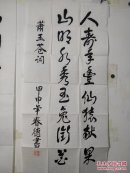 人寿年丰仙猿献果
山明水秀玉兔衔芝
萧玉苍词
甲申年春德书